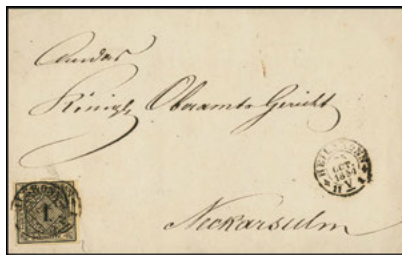 An das
Königl. Oberamts Gericht
HEILBRONN
OCT.
1851
1
Neckarsulm